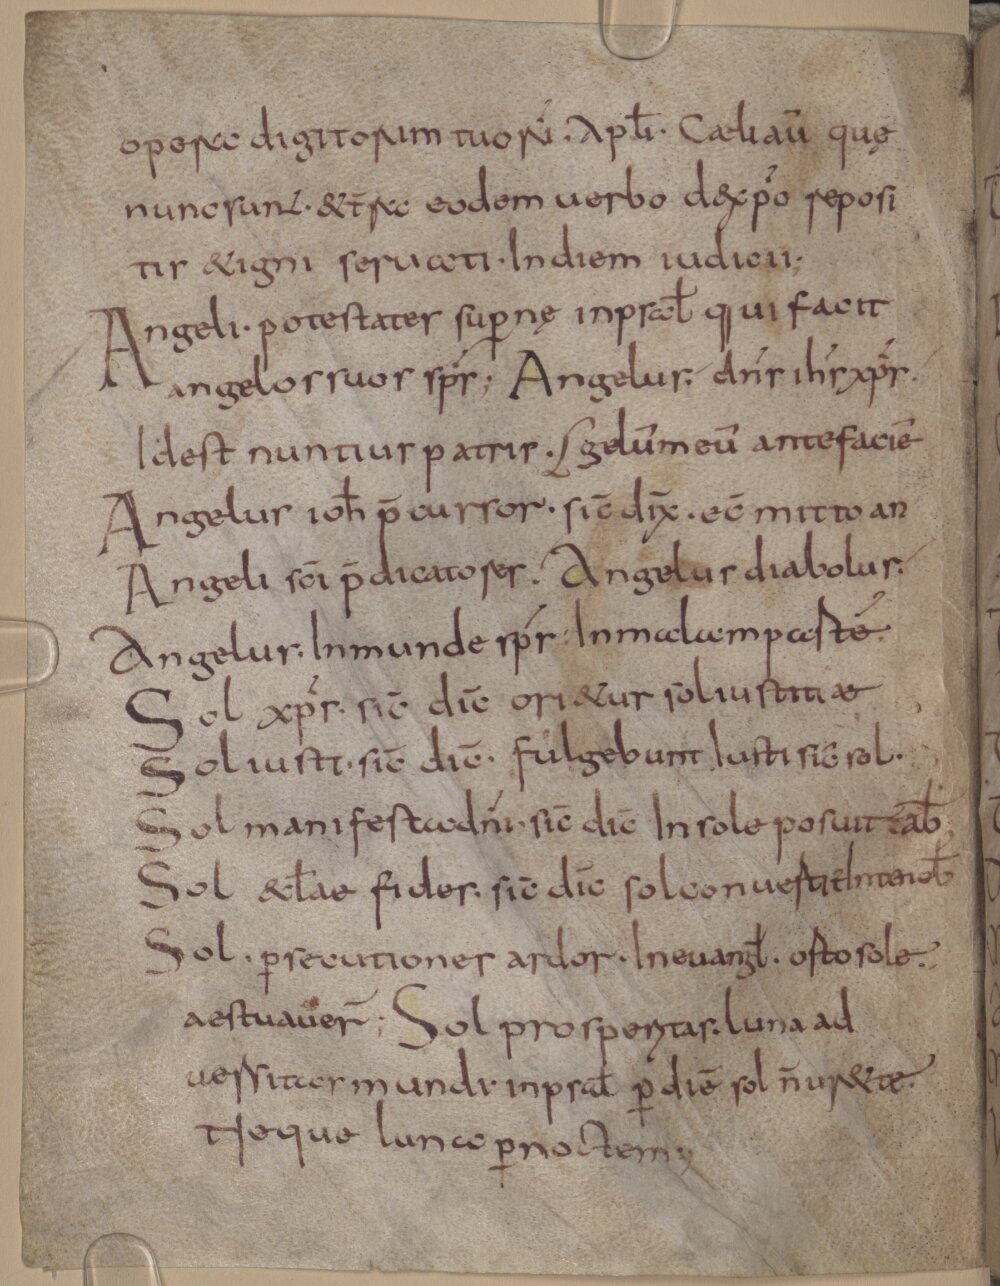 opera digitorum tuorū. Aplī. Cæli aū quę
nunc sunt. &t̄ra eodem verbo d&xp̄o reposi
tis &igni servati. In diem iudicii;
Angeli. potestates sup̱nę inpsal̄ qui facit
angelos suos sp̄s; Angelus. dn̄s ih̄s xp̄s.
Idest nuntius patris. gelūm eū ante faciē
Angelus ioh̄ p̄cursor. sic̄ dix̄. ec̄ mitto an
Angeli sc̄i p̄dicatores. Angelus diabolus.
Angelus. Inmunde sp̄s. In malam partē.
Sol xp̄s. sic̄ dic̄ ori&ur sol iustitiae
Sol iusti. sic̄ dic̄. fulgebunt Iusti sic̄ sol.
Sol manifesta dn̄i. sic̄ dic̄ In sole posuit tab̄
Sol &cl̄ae fides. sic̄ dic̄ sol convestit̄
Sol. p̱secutiones ardor. In evangl̄. orto sole.
aestuaver̄; Sol prosperitas. luna ad
versitas mundi. inpsal̄ p̱ diē sol n̄ ur&te.
neque luna p̱ noctem;